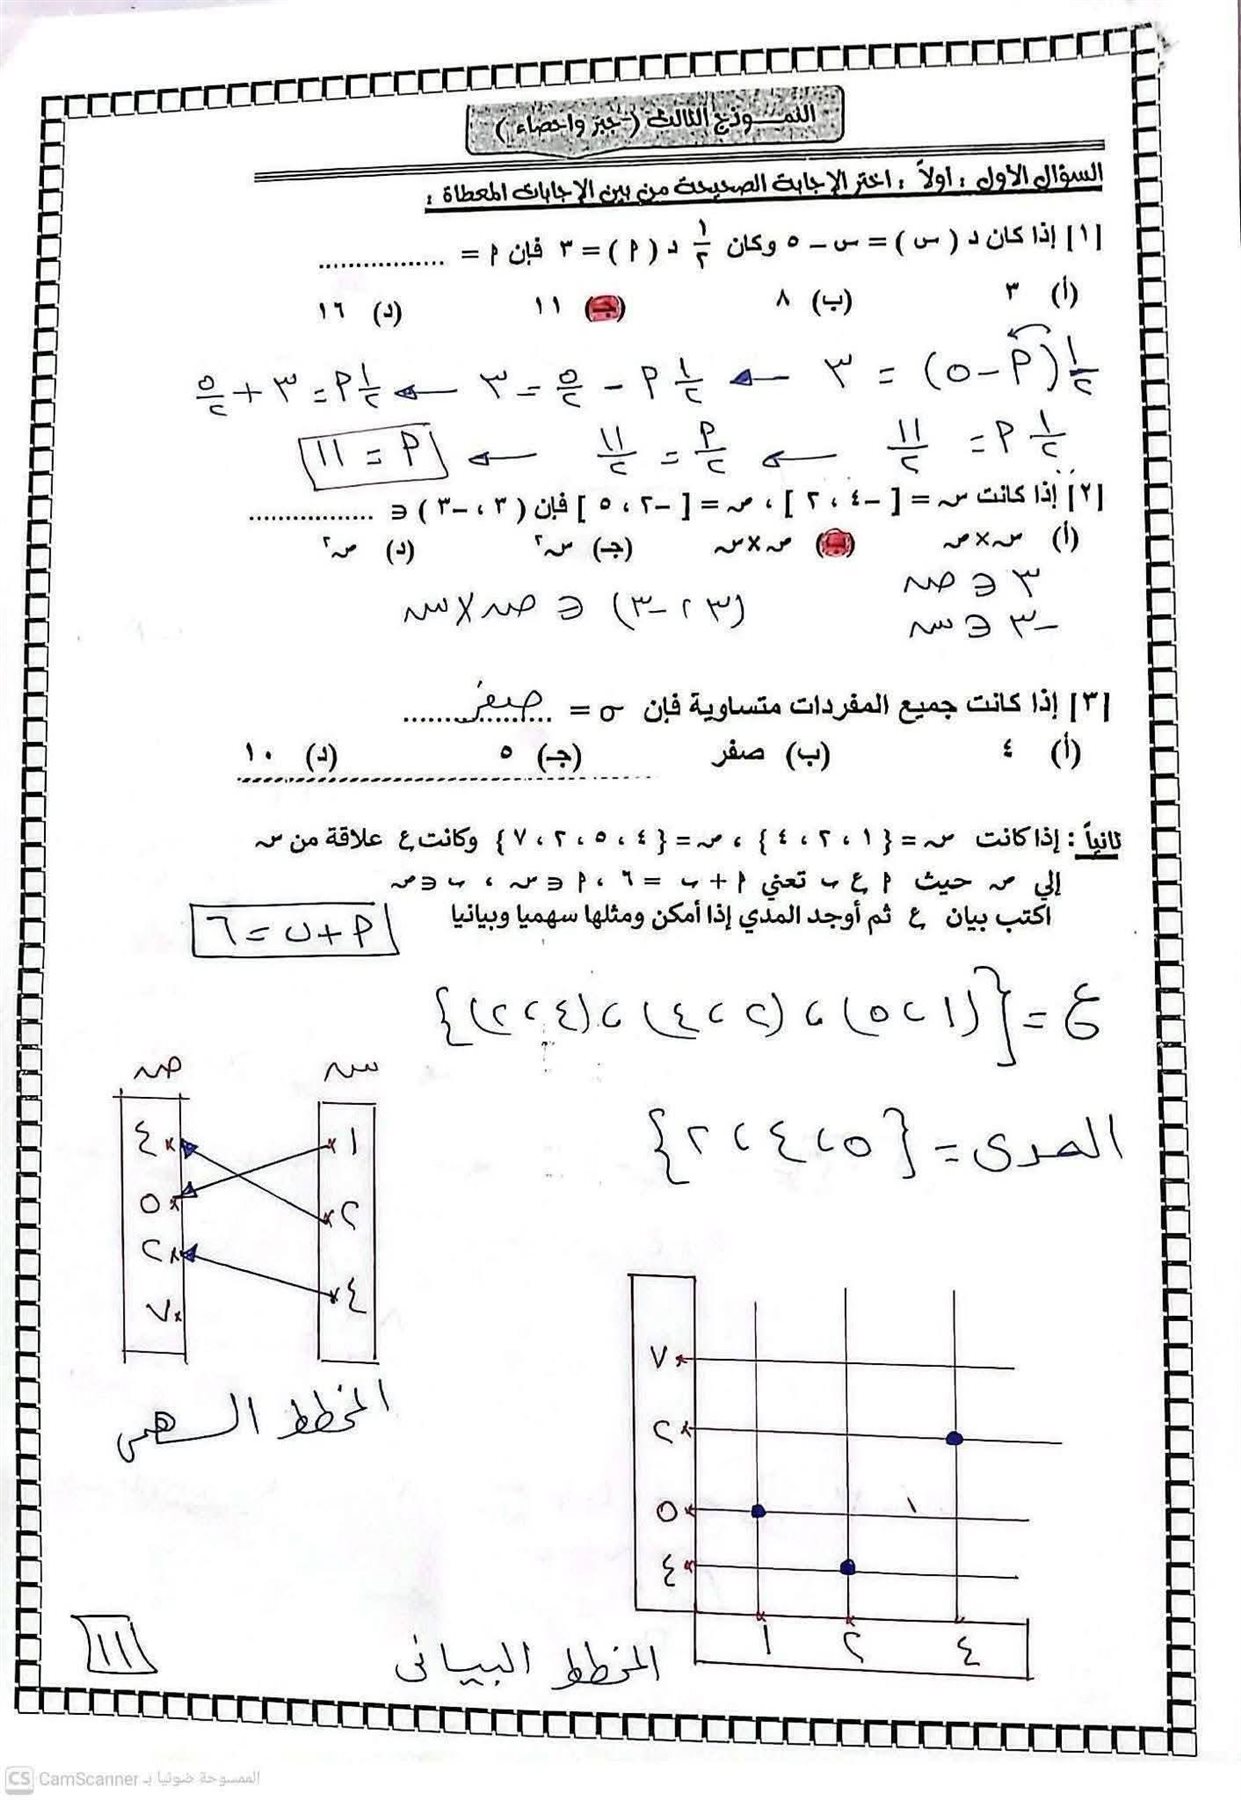 النموذج الثالث (جبر واحصاء)
السؤال الأول : أولاً : اختر الإجابة الصحيحة من بين الإجابات المعطاة :
[١] إذا كان د ( س ) = س – ٥ وكان ١/٢ د ( م ) = ٣ فإن م = ................
(أ) ٣ (ب) ٨ (جـ) ١١ (د) ١٦
١/٢ (م – ٥) = ٣ ← ١/٢ م – ٥/٢ = ٣ ← ١/٢ م = ٣ + ٥/٢
١/٢ م = ١١/٢ ← م/٢ = ١١/٢ ← م = ١١
[٢] إذا كانت س = [ –٤ ، ٢ ] ، ص = [ –٢ ، ٥ ] فإن ( ٣ ، –٣ ) ∈ ................
(أ) س×ص (ب) ص×س (جـ) س٢ (د) ص٢
٣ ∈ ص
–٣ ∈ س
(٣ ، –٣) ∈ ص × س
[٣] إذا كانت جميع المفردات متساوية فإن σ = صفر
(أ) ٤ (ب) صفر (جـ) ٥ (د) ١٠
ثانياً : إذا كانت س = {١ ، ٢ ، ٤} ، ص = {٤ ، ٥ ، ٢ ، ٧} وكانت ع علاقة من س
إلي ص حيث م ع ب تعني م + ب = ٦ ، م ∈ س ، ب ∈ ص
اكتب بيان ع ثم أوجد المدي إذا أمكن ومثلها سهميا وبيانيا
م + ب = ٦
ع = {(١ ، ٥) ، (٢ ، ٤) ، (٤ ، ٢)}
المدى = {٥ ، ٤ ، ٢}
س ص
١ ٤
٢ ٥
٤ ٢
٧
المخطط السهمى
٧
٢
٥
٤
١ ٢ ٤
المخطط البيانى
١١
CS CamScanner الممسوحة ضوئيا بـ